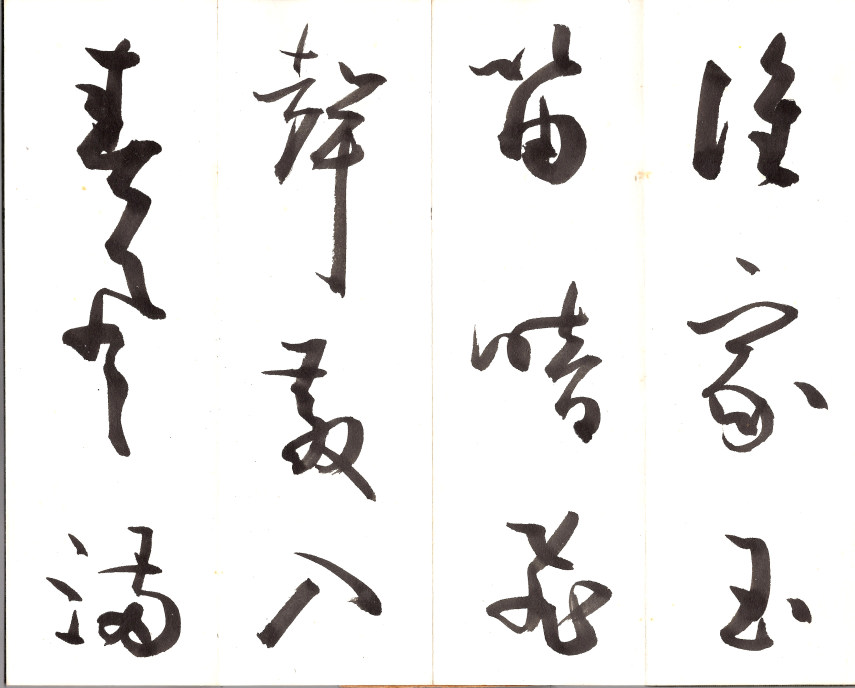 誰家玉
笛暗飛
聲散入
春風滿